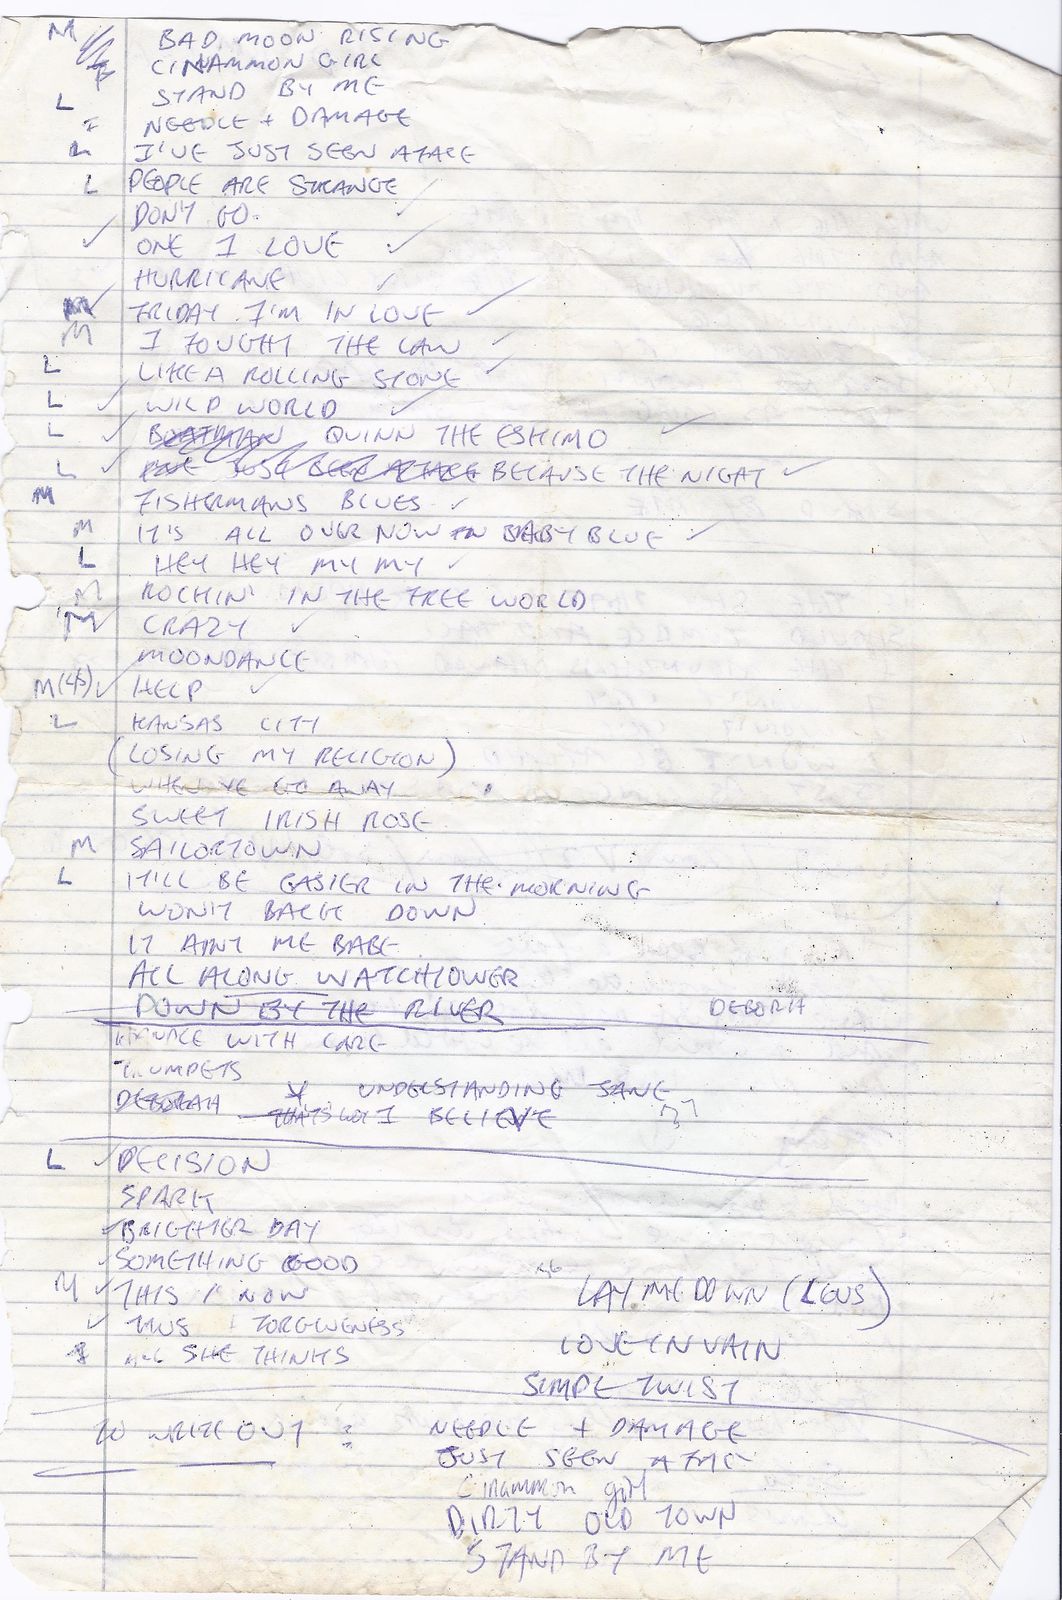 M BAD MOON RISING
CINAMMON GIRL
L STAND BY ME
NEEDLE + DAMAGE
L I'VE JUST SEEN A FACE
L PEOPLE ARE STRANGE ✓
DON'T GO ✓
✓ ONE I LOVE ✓
HURRICANE ✓
M ✓ FRIDAY I'M IN LOVE ✓
M I FOUGHT THE LAW ✓
L LIKE A ROLLING STONE ✓
L ✓ WILD WORLD ✓
L ✓ BOATMAN QUINN THE ESKIMO ✓
L ✓ JUST SEEN A FACE BECAUSE THE NIGHT ✓
M FISHERMANS BLUES ✓
M IT'S ALL OVER NOW BABY BLUE ✓
L HEY HEY MY MY ✓
M ROCKIN' IN THE FREE WORLD
M CRAZY ✓
MOONDANCE
M(45) ✓ HELP ✓
L KANSAS CITY
(LOSING MY RELIGION)
WHEN YE GO AWAY
SWEET IRISH ROSE
M SAILORTOWN
L IT'LL BE EASIER IN THE MORNING
WON'T BACK DOWN
IT AINT ME BABE
ALL ALONG WATCHTOWER
DOWN BY THE RIVER DEBORAH
WITH CARE
TRUMPETS
DEBORAH * UNDERSTANDING JANE
THATS WHY I BELIEVE ??
L ✓ DECISION
SPARK
✓ BRIGHTER DAY
✓ SOMETHING GOOD
M ✓ THIS IS NOW LAY ME DOWN (LEVIS)
✓ FORGIVENESS
SHE THINKS LOVE IN VAIN
SIMPLE TWIST
TO WRITE OUT : NEEDLE + DAMAGE
JUST SEEN A FACE
Cinammon girl
DIRTY OLD TOWN
STAND BY ME